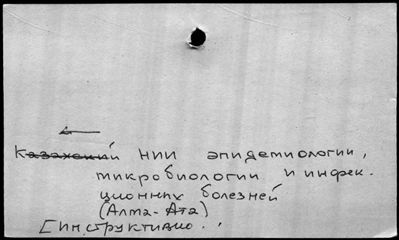 Казахский НИИ эпидемиологии,
микробиологии и инфек-
ционных болезней
(Алма-Ата)
[Инструктивно..